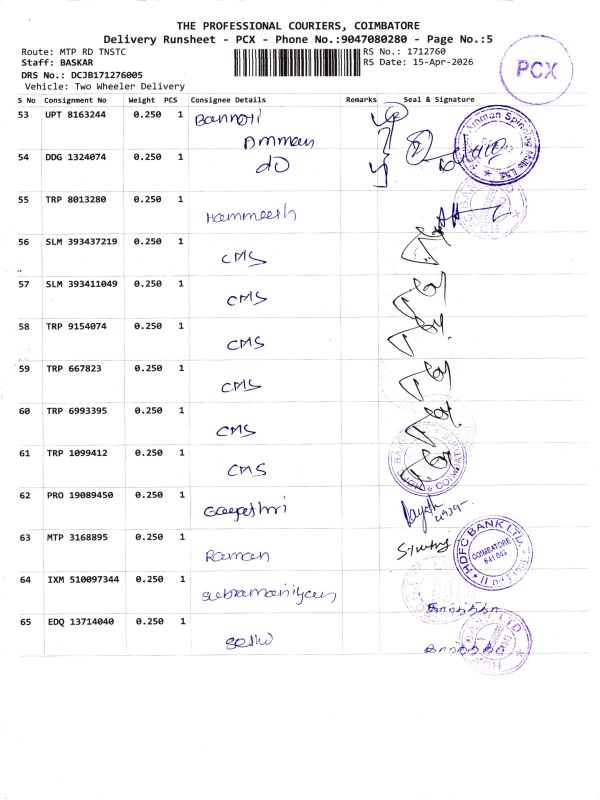 THE PROFESSIONAL COURIERS, COIMBATORE
Delivery Runsheet - PCX - Phone No.:9047080280 - Page No.:5
Route: MTP RD TNSTC
RS No.: 1712760
Staff: BASKAR
RS Date: 15-Apr-2026
DRS No.: DCJB171276005
Vehicle: Two Wheeler Delivery
PCX
S No Consignment No Weight PCS Consignee Details Remarks Seal & Signature
53 UPT 8163244 0.250 1 Bannari
Amman
54 DDG 1324074 0.250 1 do
Amman Spinning Mills Ltd.
55 TRP 8013280 0.250 1 Hammeesh
56 SLM 393437219 0.250 1 CMS
57 SLM 393411049 0.250 1 CMS
58 TRP 9154074 0.250 1 CMS
59 TRP 667823 0.250 1 CMS
60 TRP 6993395 0.250 1 CMS
61 TRP 1099412 0.250 1 CMS
COIMBATORE
62 PRO 19089450 0.250 1 Gayathri
63 MTP 3168895 0.250 1 Raman
HDFC BANK LTD.
COIMBATORE
641 043
64 IXM 510097344 0.250 1 Subramaniyan
கார்த்திகா
65 EDQ 13714040 0.250 1
கார்த்திகா